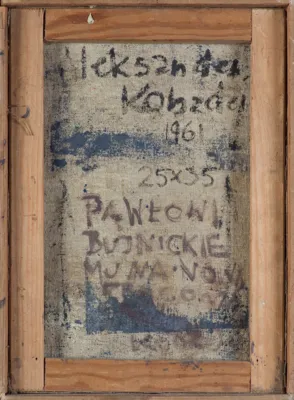 Aleksander
Kobzdej
1961
25x35
PAWŁOWI
BUJNICKIE
MU NA NOWY